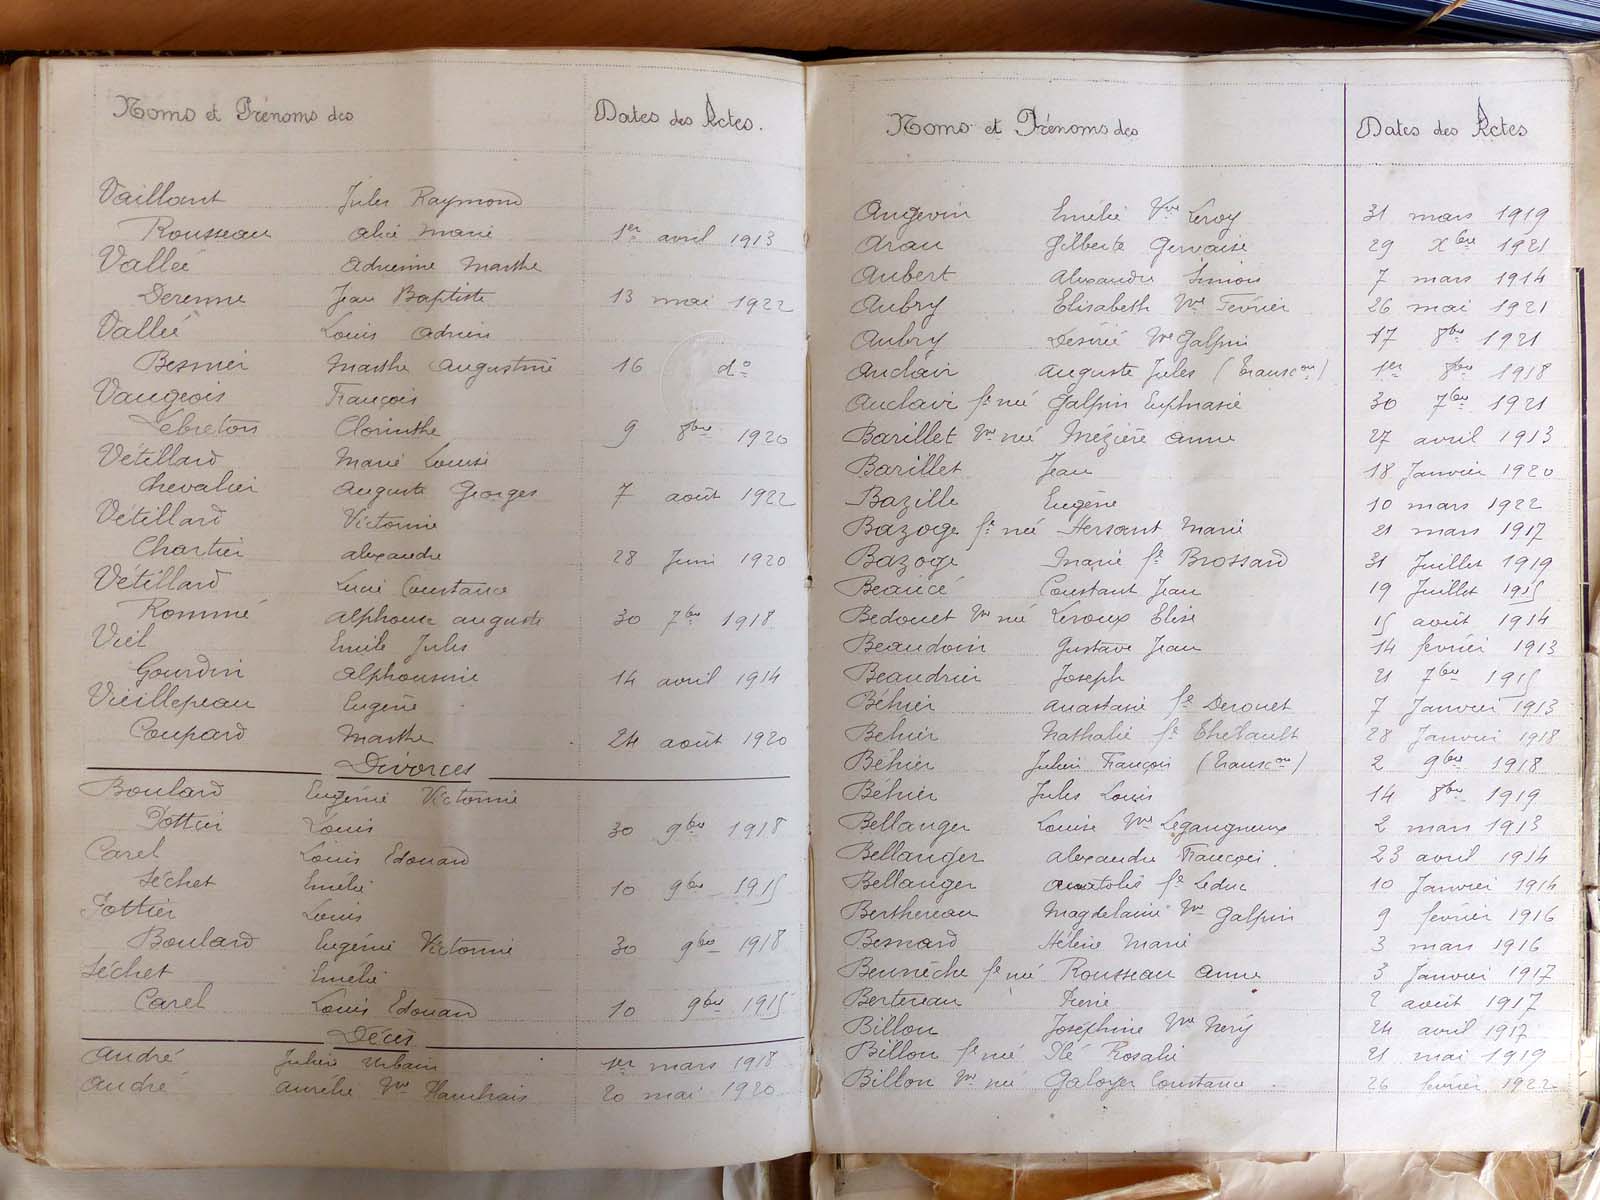 Noms et Prénoms des Dates des Actes.
Vaillant Jules Raymond
Rousseau Alice Marie 1er avril 1913
Vallée Adrienne Marthe
Derenne Jean Baptiste 13 mai 1922
Vallée Louis Adrien
Besnier Marthe Augustine 16 do
Vaugeois François
Lebreton Clorinthe 9 8bre 1920
Vétillard Marie Louise
Chevalier Auguste Georges 7 août 1922
Vétillard Victorine
Chartier Alexandre 28 Juin 1920
Vétillard Lucie Constance
Rommé Alphonse Auguste 30 7bre 1918
Viel Emile Jules
Gourdin Alphonsine 14 avril 1914
Vieillepeau Eugène
Coupard Marthe 24 août 1920
Divorces
Boulard Eugénie Victorine
Pottier Louis 30 9bre 1918
Carel Louis Edouard
Séchet Emélie 10 9bre 1915
Pottier Louis
Boulard Eugénie Victorine 30 9bre 1918
Séchet Emélie
Carel Louis Edouard 10 9bre 1915
Décès
André Julien Urbain 1er mars 1918
André Aurélie Vve 20 mai 1920
Noms et Prénoms des Dates des Actes
Angevin Emélie Vve Leroy 31 mars 1919
Aran Gilberte Gervaise 29 Xbre 1921
Aubert Alexandre Simon 7 mars 1914
Aubry Elisabeth Vve Février 26 mai 1921
Aubry Désiré Vve Galpin 17 8bre 1921
Auclair Auguste Jules (Transcon) 1er 8bre 1918
Auclair fe née Galpin Euphrasie 30 7bre 1921
Barillet Vve née Mézière Anne 27 avril 1913
Barillet Jean 18 Janvier 1920
Bazille Eugène 10 mars 1922
Bazoge fe née Hersant Marie 21 mars 1917
Bazoge Marie fe Brossard 31 Juillet 1919
Beaucé Constant Jean 19 Juillet 1915
Bedouet Vve née Leroux Elise 15 août 1914
Beaudoin Gustave Jean 14 février 1913
Beaudrier Joseph 21 7bre 1915
Béhier Anastasie fe Derouet 7 Janvier 1913
Béhier Nathalie fe Thébault 28 Janvier 1918
Béhier Julien François (Transcon) 2 9bre 1918
Béhier Jules Louis 14 8bre 1919
Bellanger Louise Vve Legangneux 2 mars 1913
Bellanger Alexandre François 23 avril 1914
Bellanger Anatolie fe Leduc 10 Janvier 1914
Berthereau Magdelaine Vve Galpin 9 février 1916
Besnard Hélène Marie 3 mars 1916
Bennèche fe née Rousseau Anne 3 Janvier 1917
Bertereau Pierre 2 août 1917
Billon Joséphine Vve Néry 24 avril 1917
Billon fe née Rosalie 21 mai 1919
Billon Vve née Galoyer Constance 26 février 1922